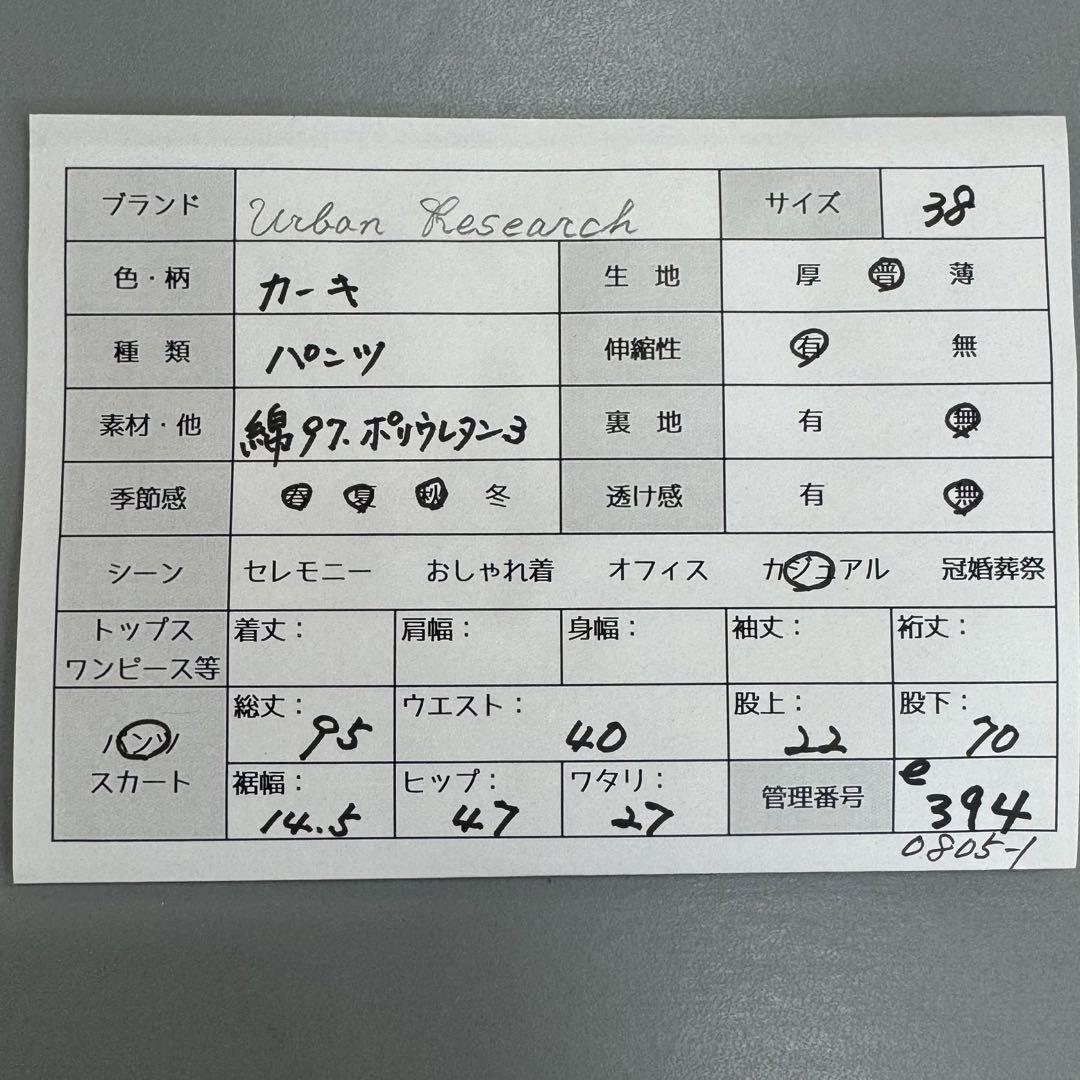 ブランド Urban Research サイズ 38
色・柄 カーキ 生地 厚 普 薄
種類 パンツ 伸縮性 有 無
素材・他 綿97.ポリウレタン3 裏地 有 無
季節感 春 夏 秋 冬 透け感 有 無
シーン セレモニー おしゃれ着 オフィス カジュアル 冠婚葬祭
トップス ワンピース等 着丈: 肩幅: 身幅: 袖丈: 裄丈:
パンツ スカート 総丈: 95 ウエスト: 40 股上: 22 股下: 70
裾幅: 14.5 ヒップ: 47 ワタリ: 27 管理番号 e 394
0805-1